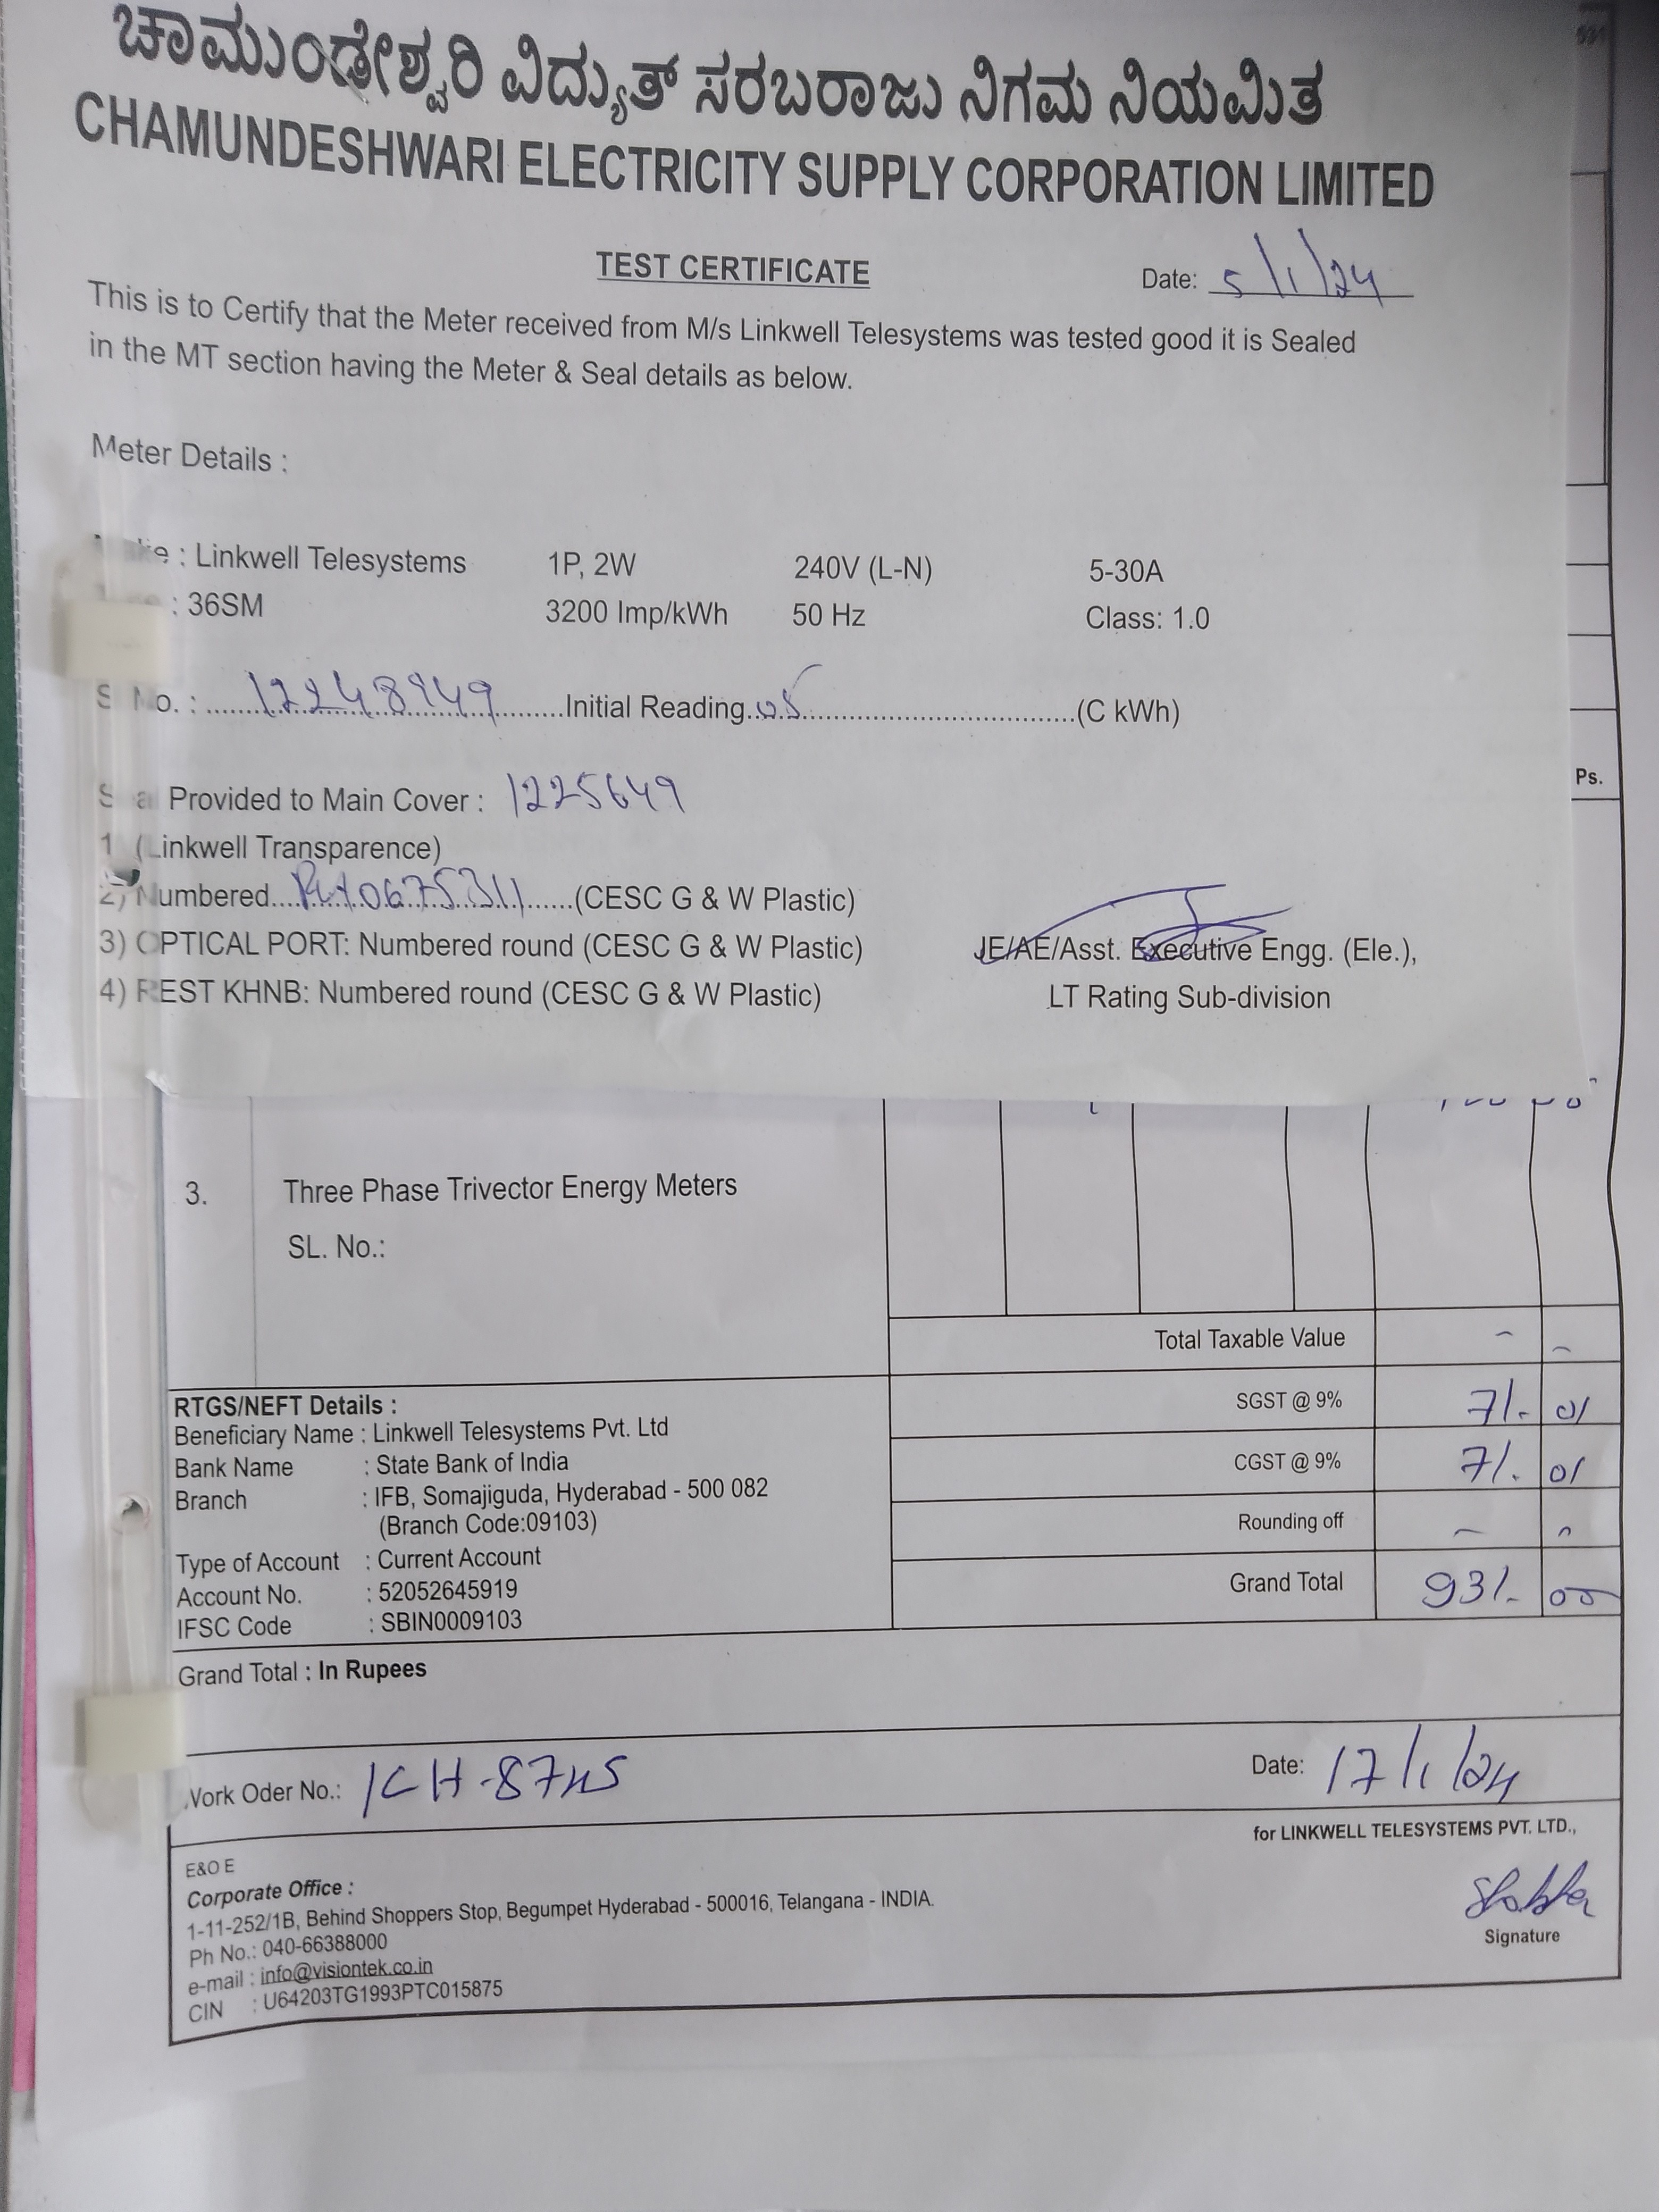 ಚಾಮುಂಡೇಶ್ವರಿ ವಿದ್ಯುತ್ ಸರಬರಾಜು ನಿಗಮ ನಿಯಮಿತ
CHAMUNDESHWARI ELECTRICITY SUPPLY CORPORATION LIMITED
TEST CERTIFICATE Date: 5/1/24
This is to Certify that the Meter received from M/s Linkwell Telesystems was tested good it is Sealed
in the MT section having the Meter & Seal details as below.
Meter Details :
: Linkwell Telesystems 1P, 2W 240V (L-N) 5-30A
: 36SM 3200 Imp/kWh 50 Hz Class: 1.0
No. : 12248949 Initial Reading 05 (C kWh)
Provided to Main Cover : 1225649
1 (Linkwell Transparence)
2) Numbered (CESC G & W Plastic)
3) OPTICAL PORT: Numbered round (CESC G & W Plastic) JE/AE/Asst. Executive Engg. (Ele.),
4) REST KHNB: Numbered round (CESC G & W Plastic) LT Rating Sub-division
Ps.
3. Three Phase Trivector Energy Meters
SL. No.:
Total Taxable Value
RTGS/NEFT Details : SGST @ 9% 71.- 01
Beneficiary Name : Linkwell Telesystems Pvt. Ltd
Bank Name : State Bank of India CGST @ 9% 71.- 01
Branch : IFB, Somajiguda, Hyderabad - 500 082
(Branch Code:09103) Rounding off
Type of Account : Current Account
Account No. : 52052645919 Grand Total 931.- 00
IFSC Code : SBIN0009103
Grand Total : In Rupees
Work Oder No.: Date: 17/1/24
for LINKWELL TELESYSTEMS PVT. LTD.,
E&O E
Corporate Office :
1-11-252/1B, Behind Shoppers Stop, Begumpet Hyderabad - 500016, Telangana - INDIA.
Ph No.: 040-66388000
Signature
e-mail : info@visiontek.co.in
CIN : U64203TG1993PTC015875